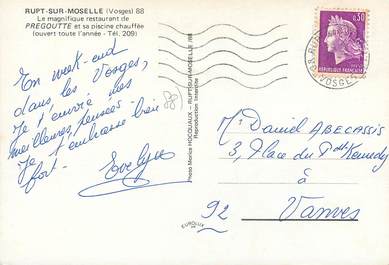 RUPT-SUR-MOSELLE (Vosges) 88
Le magnifique restaurant de
PREGOUTTE et sa piscine chauffée
(ouvert toute l'année - Tél. 209)
En week-end
dans les Vosges,
Je t'envoie mes
meilleures pensées
Je t'embrasse bien
fort -
Evelyne
Photo Marice HOCQUAUX - RUPT-SUR-MOSELLE (88)
Reproduction Interdite
EUROLUX
0,30
REPUBLIQUE FRANÇAISE
88 RUPT
VOSGES
Mr Daniel ABECASSIS
3, Place du Pdt Kennedy
à
92 Vanves